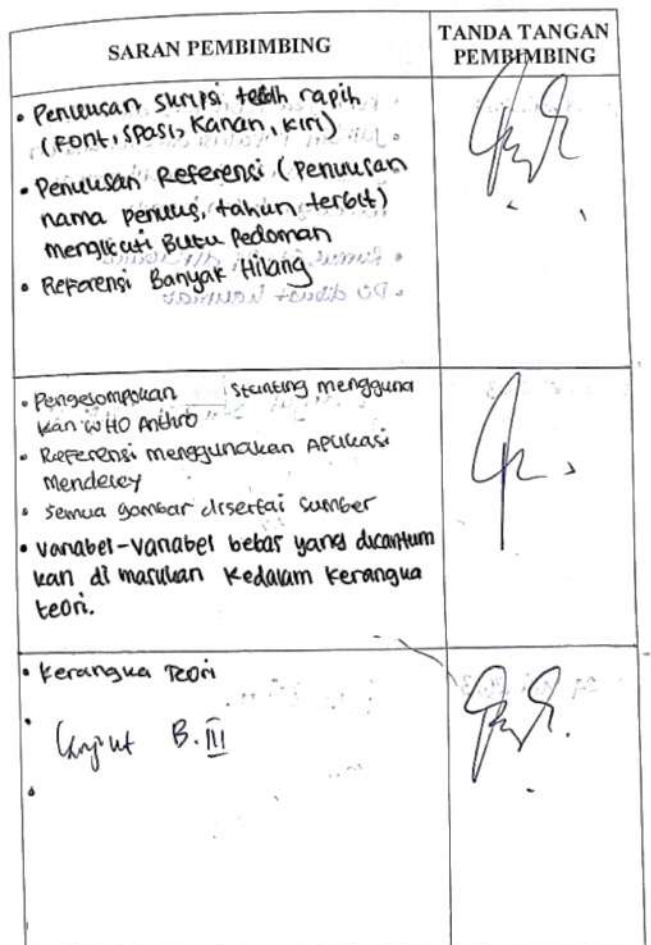 SARAN PEMBIMBING
TANDA TANGAN
PEMBIMBING
• Penulisan skripsi lebih rapih
(Font, spasi, Kanan, kiri)
• Penulisan Referensi (Penulisan
nama penulis, tahun terbit)
mengikuti Buku Pedoman
• Referensi Banyak Hilang
• Pengelompokan Stunting mengguna
kan WHO Anthro
• Referensi menggunakan Aplikasi
Mendeley
• Semua gambar disertai sumber
• Variabel-Variabel bebas yang dicantum
kan di masukan Kedalam Kerangka
teori.
• Kerangka Teori
• Lanjut B.III